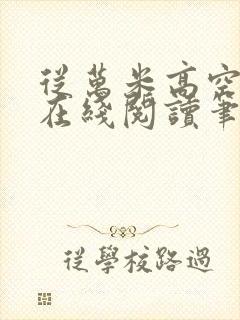 從萬米高空
在綫閱讀筆
從學校路過